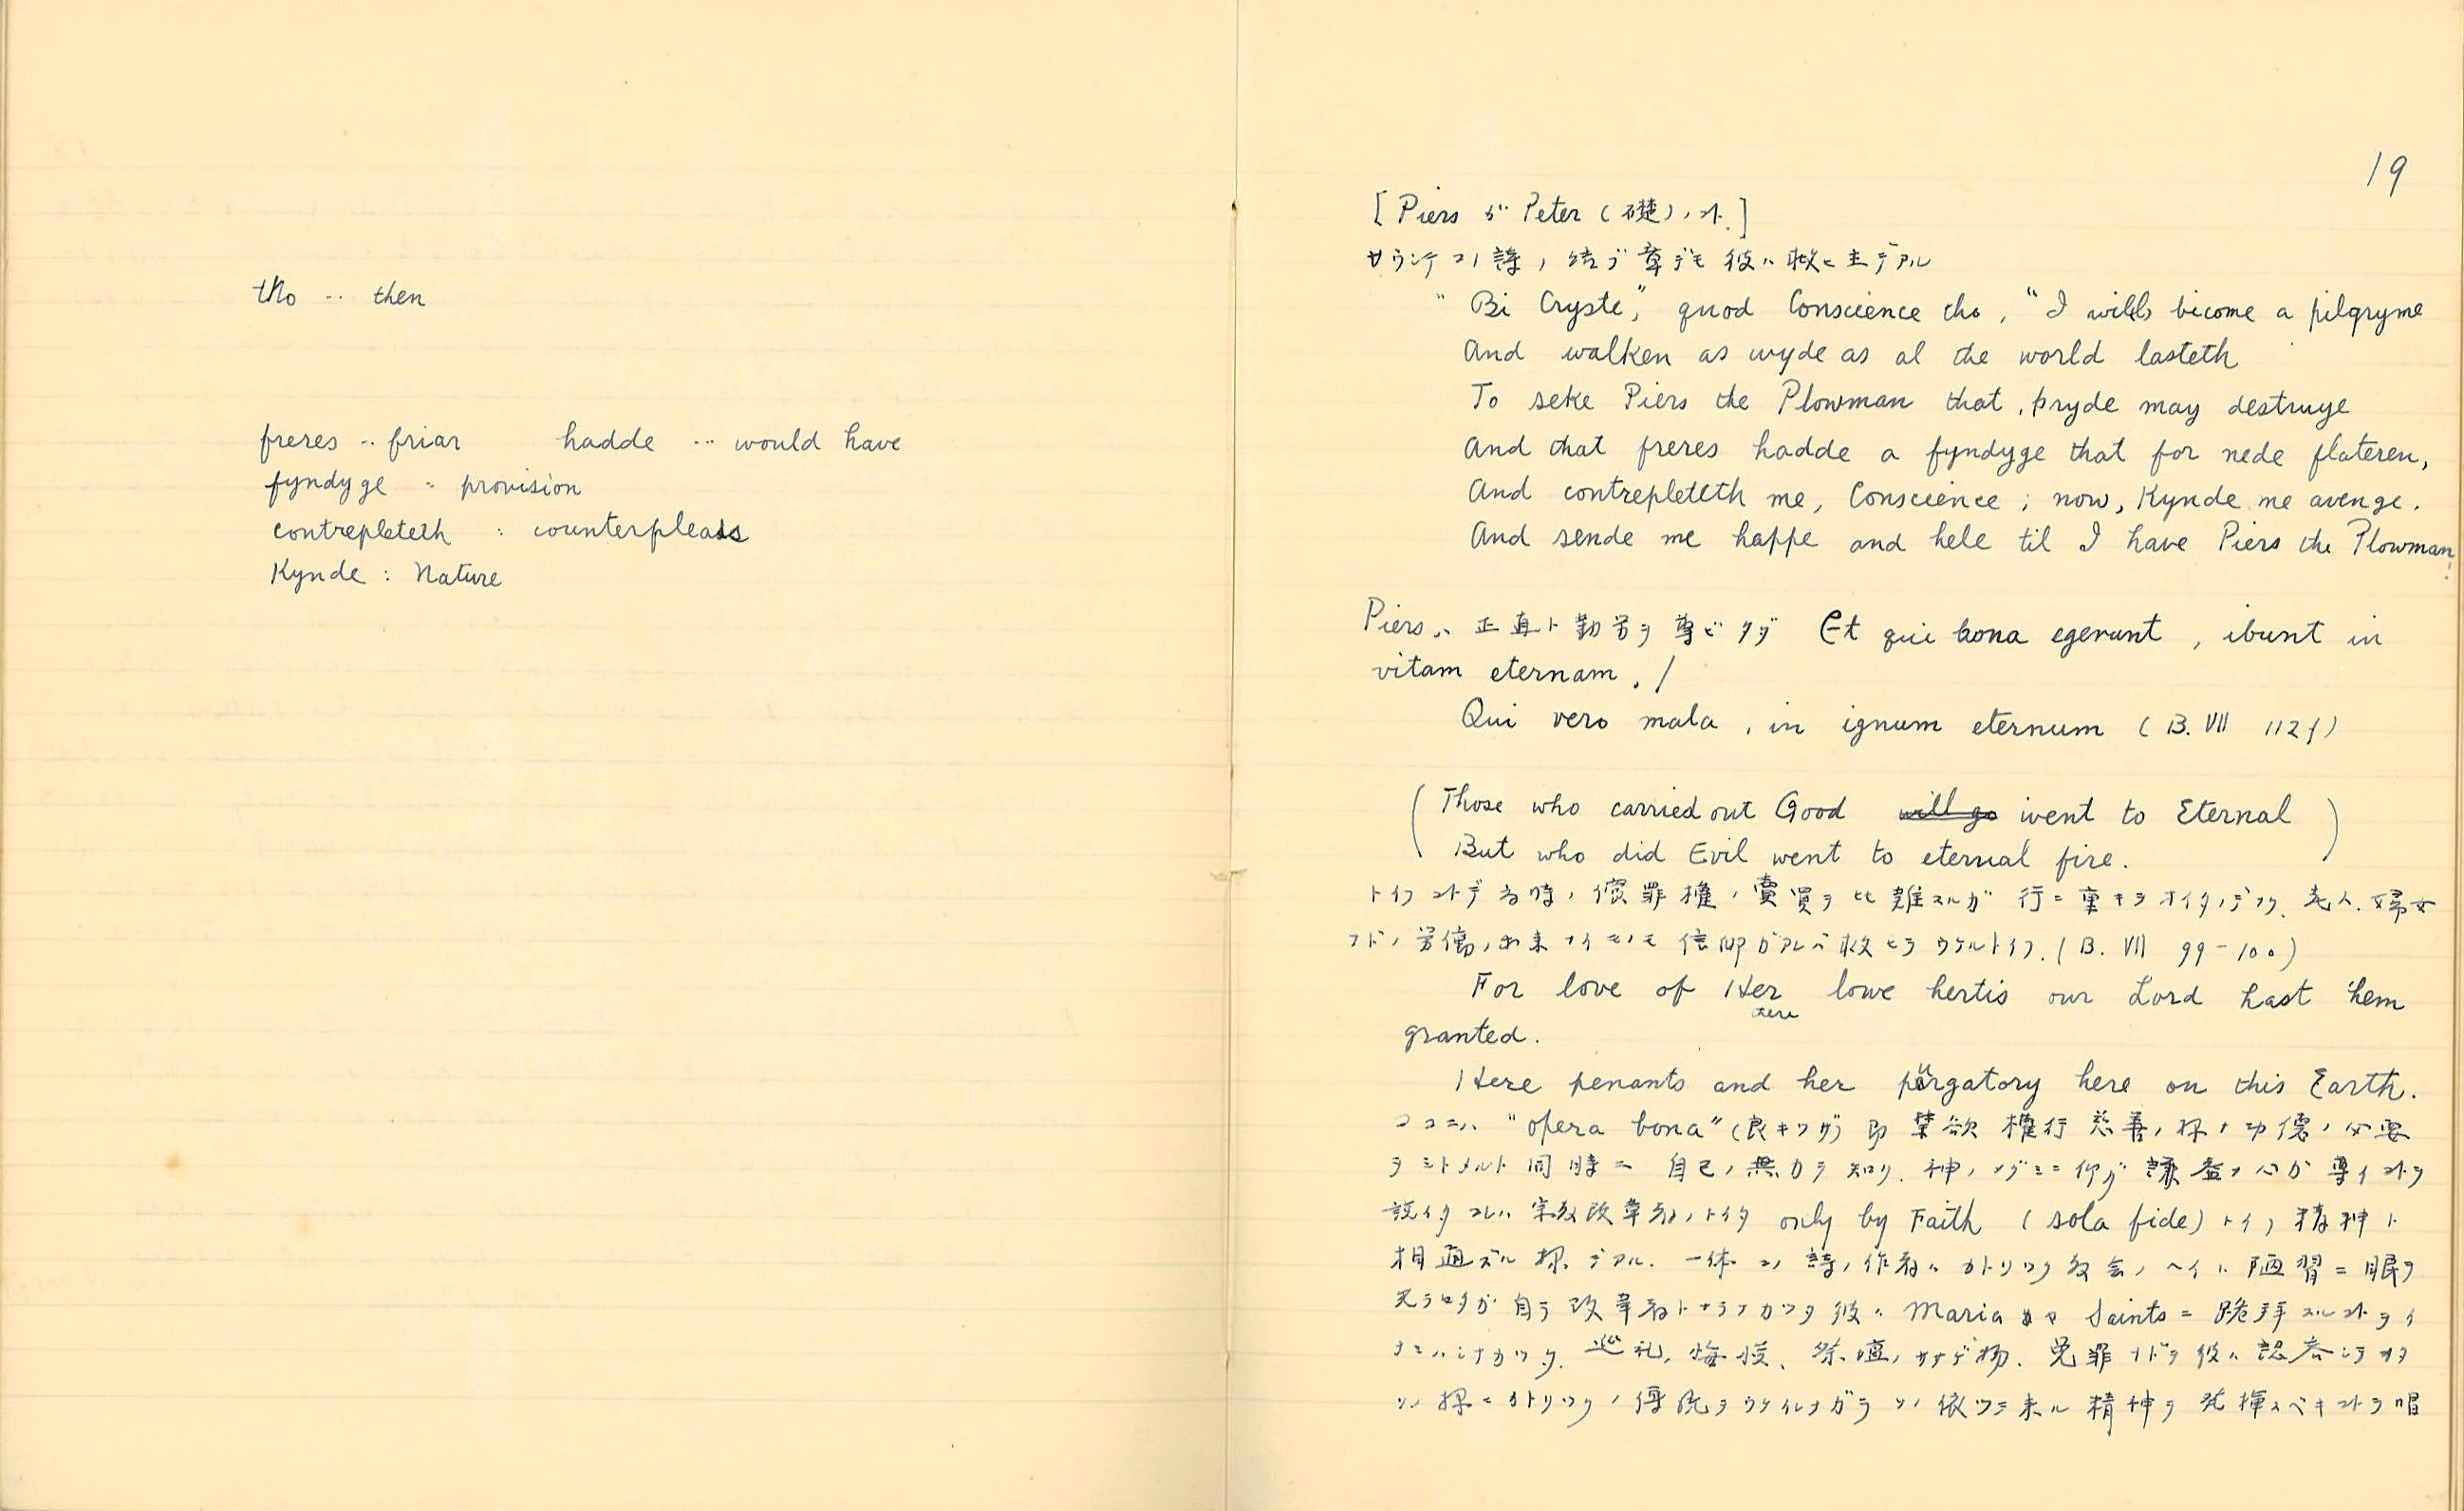 tho ·· then
freres ·· friar hadde ·· would have
fyndyge = provision
contrepleteth : counterpleads
Kynde : Nature
19
[ Piers ガ Peter (礎)ノコト.]
サウシテコノ詩ノ結ブ章デモ彼ハ救ヒ主デアル
"Bi Cryste", quod Conscience tho, "I will become a pilgryme
And walken as wyde as al the world lasteth
To seke Piers the Plowman that, pryde may destruye
And that freres hadde a fyndyge that for nede flateren,
And contrepleteth me, Conscience ; now, Kynde me avenge.
And sende me happe and hele til I have Piers the Plowman!
Piersハ正直ト勤労ヲ尊ビタダ Et qui bona egerunt, ibunt in
vitam eternam. /
Qui vero mala, in ignum eternum (B. VII 112f)
( Those who carried out Good will go went to Eternal )
But who did Evil went to eternal fire.
トイフコトデ当時ノ償罪権ノ賣買ヲ比難スルガ行ニ重キヲオイタノデアク. 老人. 婦女
ナドノ労働ノ出来ナイモノモ信仰ガアレバ救ヒヲウケルトイフ. (B. VII 99-100)
For love of Her lowe hertis our Lord hast hem
their
granted.
Here penants and her purgatory here on this Earth.
ココニハ "opera bona" (良キワザ) 即禁欲 権行 慈善ノ様ナ功徳ノ必要
ヲミトメルト同時ニ 自己ノ無力ヲ知リ. 神ノメグミニ仰グ謙虚ナ心ガ尊イコトヲ
説イタ コレハ宗教改革者ノトイタ only by Faith (sola fide) トイフ精神ト
相通ズル様デアル. 一体コノ詩ノ作者ハカトリック教会ノ 陋習ニ眼ヲ
光ラセタガ自ラ改革者トナラナカツタ彼ハ Maria ヤ Saints ニ跪拝スルコトヲイ
ナミハシナカツタ. 巡礼, 悔悛、祭壇ノササゲ物. 免罪ナドヲ彼ハ認容シテヰタ
ソノ様ニカトリックノ傳統ヲウケイレナガラソノ依ツテ来ル精神ヲ発揮スベキコトヲ唱